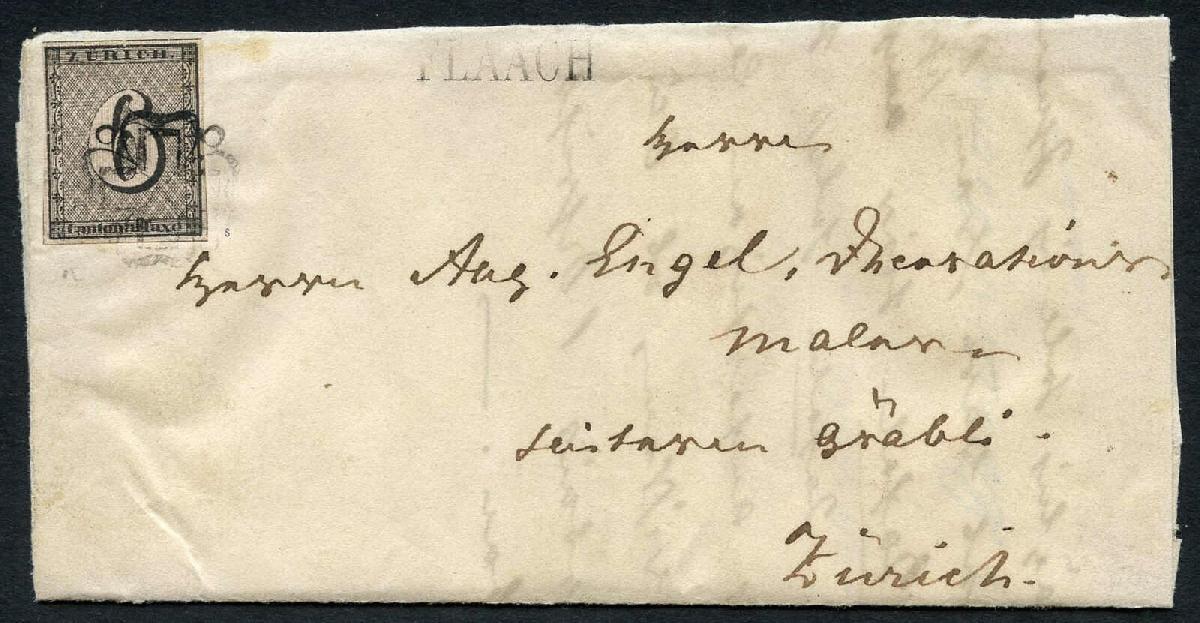 ZÜRICH.
6
Cantonal-Taxe
FLAACH
Herrn
Herrn Aug. Engel, Decorations
Maler
hinteren Gräbli.
Zürich.